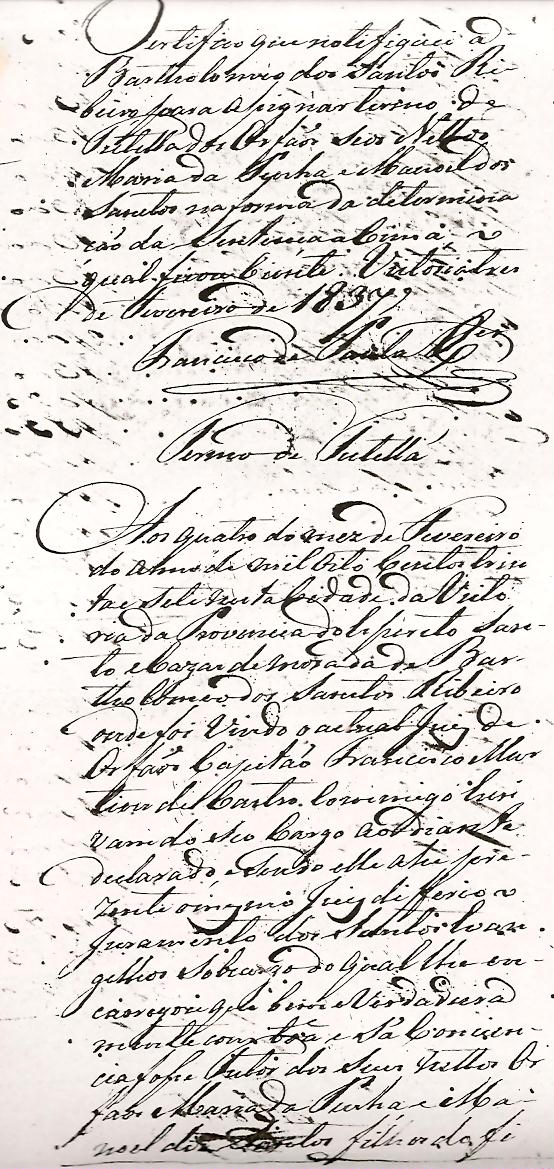 Certifico que notifiquei a
Bartholomeo dos Santos Ri-
beiro para asignar termo de
Tutella dos Orfãos seos Nettos
Maria da Penha e Manoel dos
Santos na forma da determina
ção da Sentença a Cima, o
qual ficou Ciente. Victoria tres
de Fevereiro de 1837
Francisco de Paula
Termo de Tutella
Aos quatro do mez de Fevereiro
do anno de mil oito Centos trin
ta e sete nesta Cidade da Victo
ria da Provincia do Espirito San-
to e Cazas de morada de Bar-
tholomeo dos Santos Ribeiro
onde foi Vindo o actual Juiz de
Orfãos Capitão Francisco Mar
tins de Castro comigo Escri
vam do seo Cargo ao diante
declarado e sendo elle ahi pre-
zente o mesmo Juiz diferio o
juramento dos Santos Evan-
gelhos sob cargo do qual lhe en-
carregou que bem e Verdadeira
mente com boa e sã Concien-
cia fosse Tutor dos seus Nettos Or
fãos Maria da Penha e Ma-
noel dos Santos filhos de fi